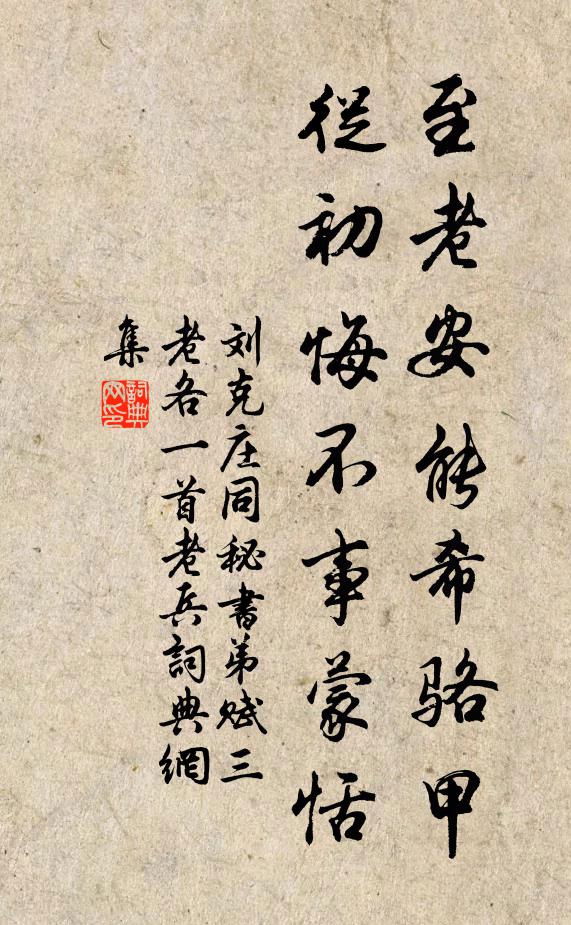 至老安能希骆甲
從初悔不事蒙恬
刘克庄同秘書弟赋三
老各一首老兵詞典網
集
詞典
网印